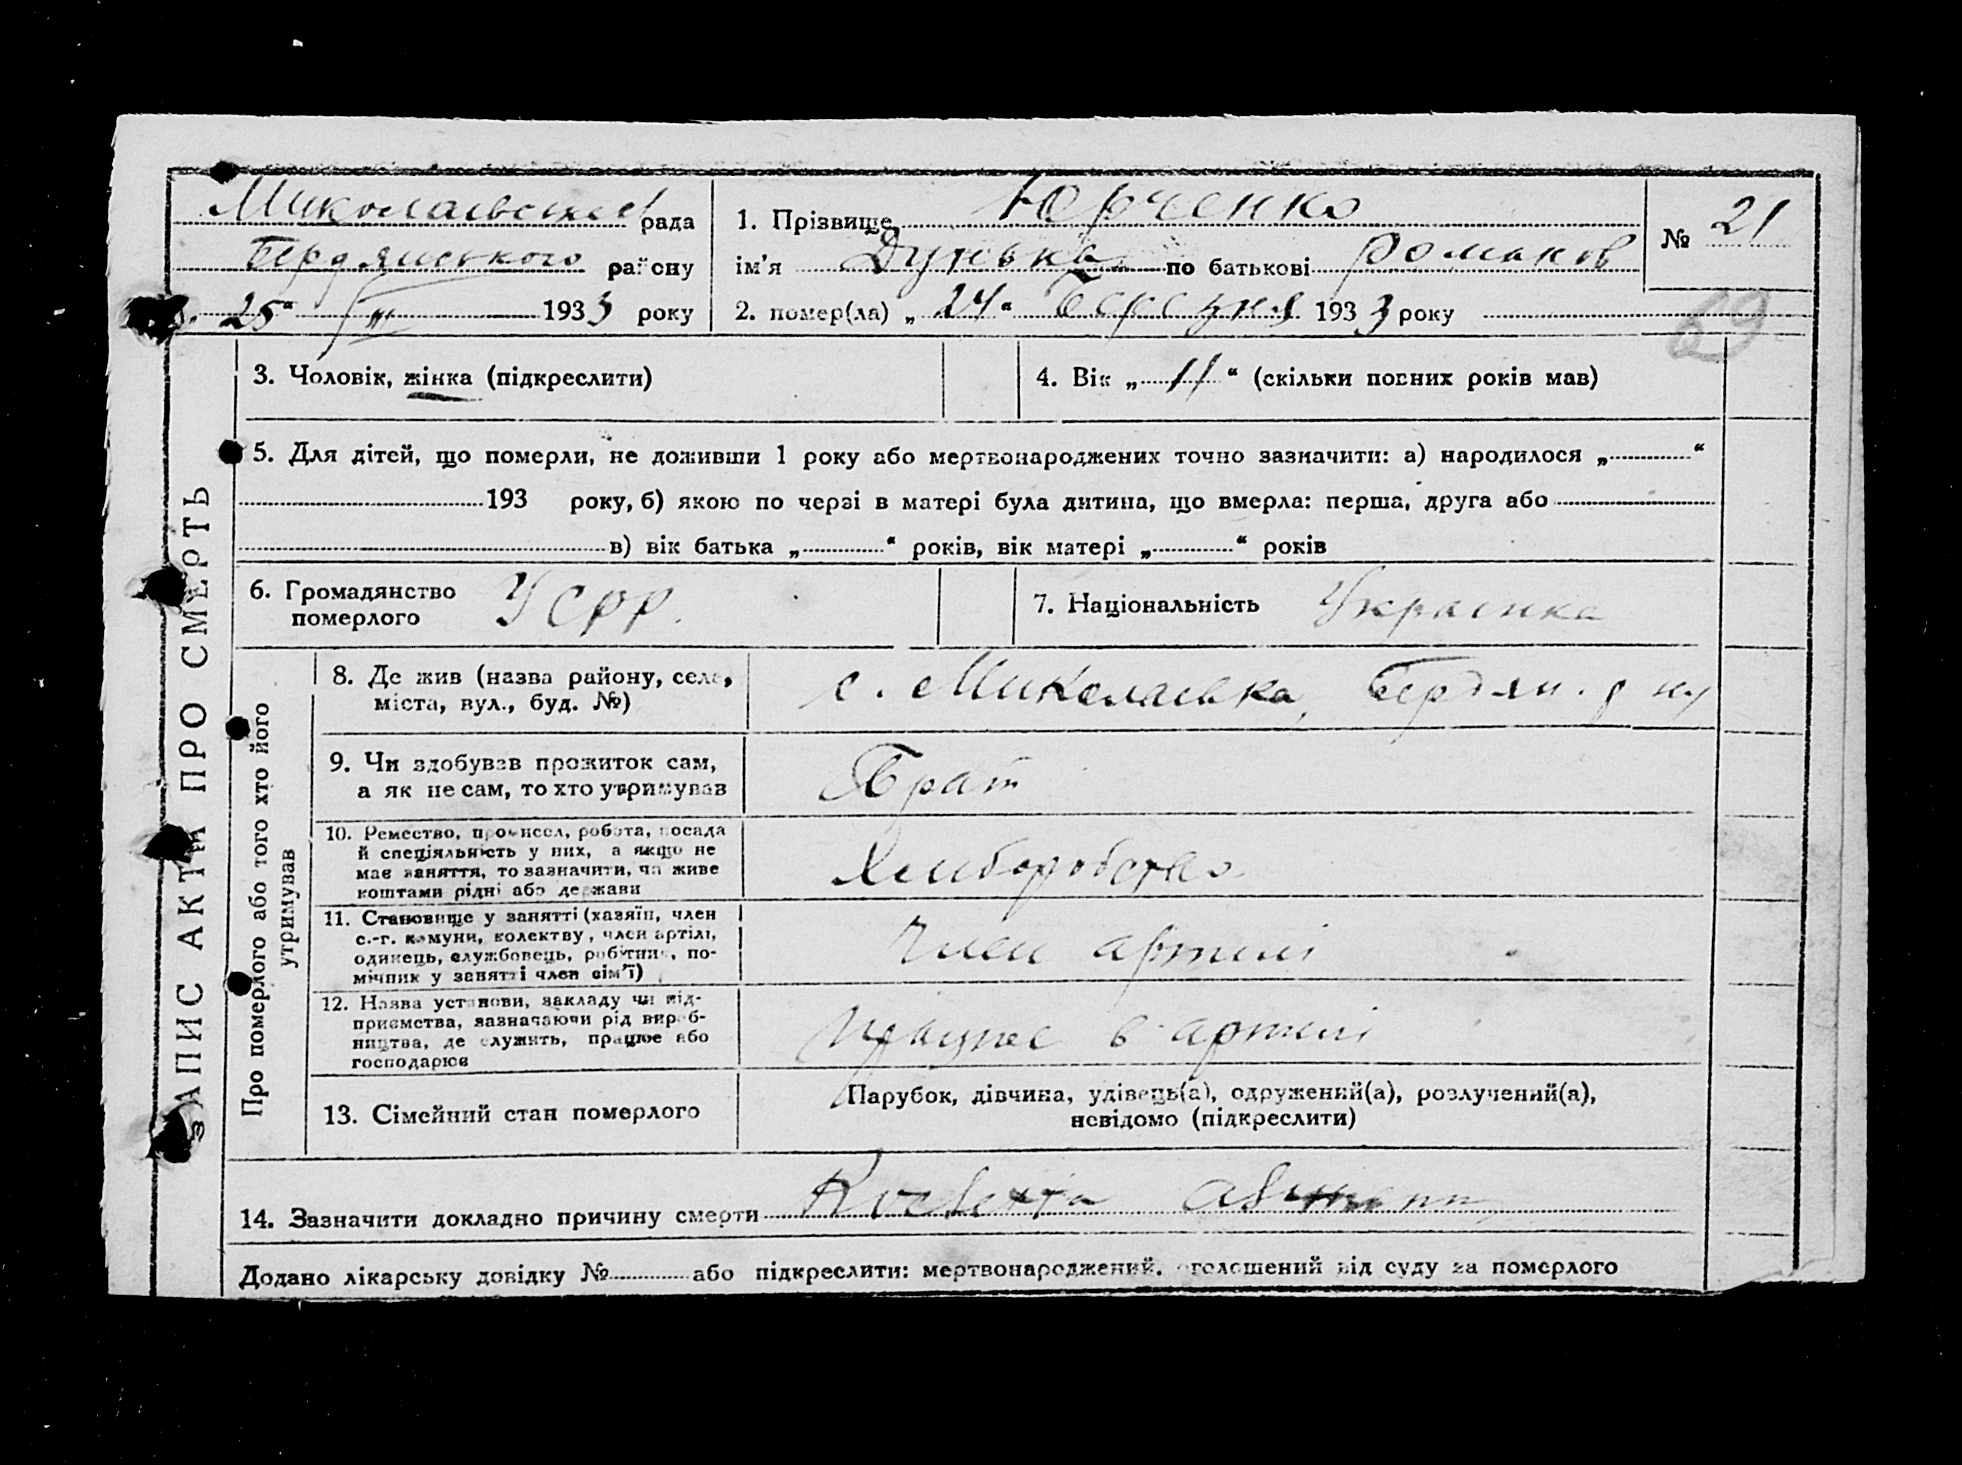 Миколаївської рада
Бердянського району
25" III 1933 року
1. Прізвище Юрченко
ім'я Дунька по батькові Романов
2. помер(ла) „24" Березня 1933 року
№ 21
69
ЗАПИС АКТА ПРО СМЕРТЬ
3. Чоловік, жінка (підкреслити)
4. Вік „11" (скільки повних років мав)
5. Для дітей, що померли, не доживши 1 року або мертвонароджених точно зазначити: а) народилося „ "
193 року, б) якою по черзі в матері була дитина, що вмерла: перша, друга або
в) вік батька „ " років, вік матері „ " років
6. Громадянство
померлого УСРР.
7. Національність Украинка
Про померлого або того хто його
утримував
8. Де жив (назва району, села,
міста, вул., буд. №)
с. Миколаевка, Бердян. р ну
9. Чи здобував прожиток сам,
а як не сам, то хто утримував
Брат
10. Ремество, промисел, робота, посада
й специяльність у них, а якщо не
має заняття, то зазначити, чи живе
коштами рідні або держави
Хлиборобство
11. Становище у занятті (хазяїн, член
с.-г. комуни, колектву, член артілі,
одинець, службовець, робітник, по-
мічник у занятті член сім'ї)
Член артилі
12. Назва установи, закладу чи під-
приємства, зазначаючи рід вироб-
ництва, де служить, працює або
господарює
Працює в артилі
13. Сімейний стан померлого
Парубок, дівчина, удівець(а), одружений(а), розлучений(а),
невідомо (підкреслити)
14. Зазначити докладно причину смерти
Додано лікарську довідку № або підкреслити: мертвонароджений, оголошений від суду за померлого